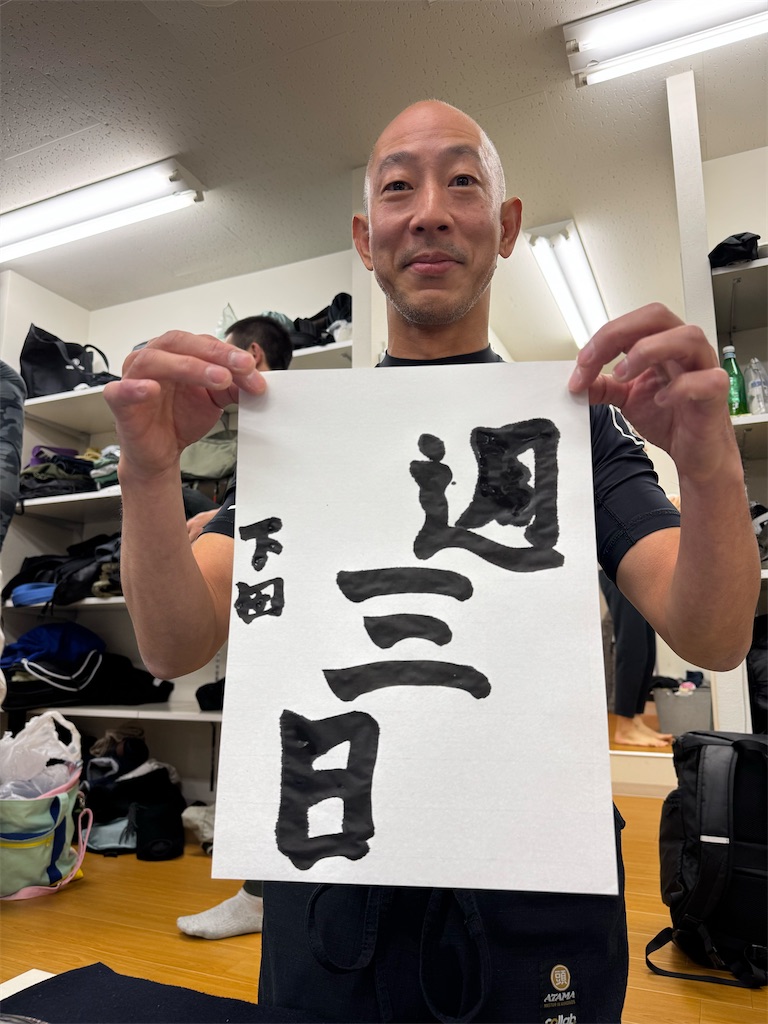 週三日
下田
頭
ATAMA
collab